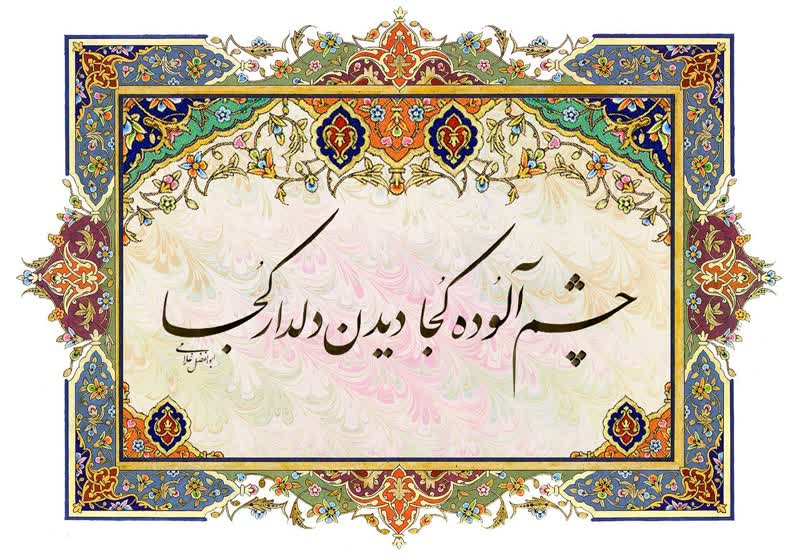 چشم آلوده کُجا دیدن دلدار کُجا
ابوالفضل غلامی